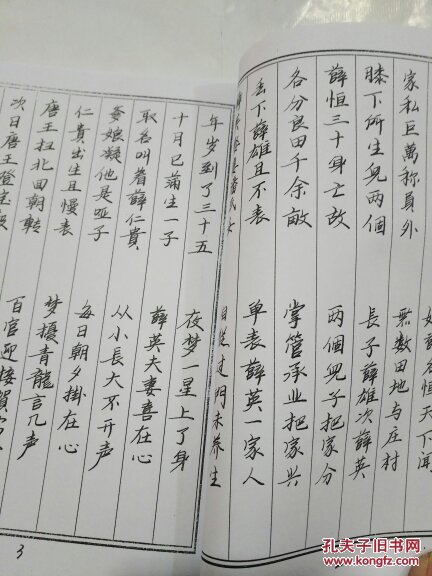 恒天下聞
家私巨萬称員外 無數田地与庄村
膝下所生兒两個 長子薛雄次薛英
薛恒三十身亡故 两個兒子把家分
各分良田千余畝 掌管承业把家兴
丢下薛雄且不表 单表薛英一家人
过门未养生
年岁到了三十五 夜梦一星上了身
十月已蒲生一子 薛英夫妻喜在心
取名叫着薛仁貴 从小長大不开声
爹娘疑他是哑子 每日朝夕掛在心
仁貴出生且慢表 梦擾青龍言几声
唐王扫北回朝轉 百官迎接賀
次日唐王登
3
孔夫子旧书网